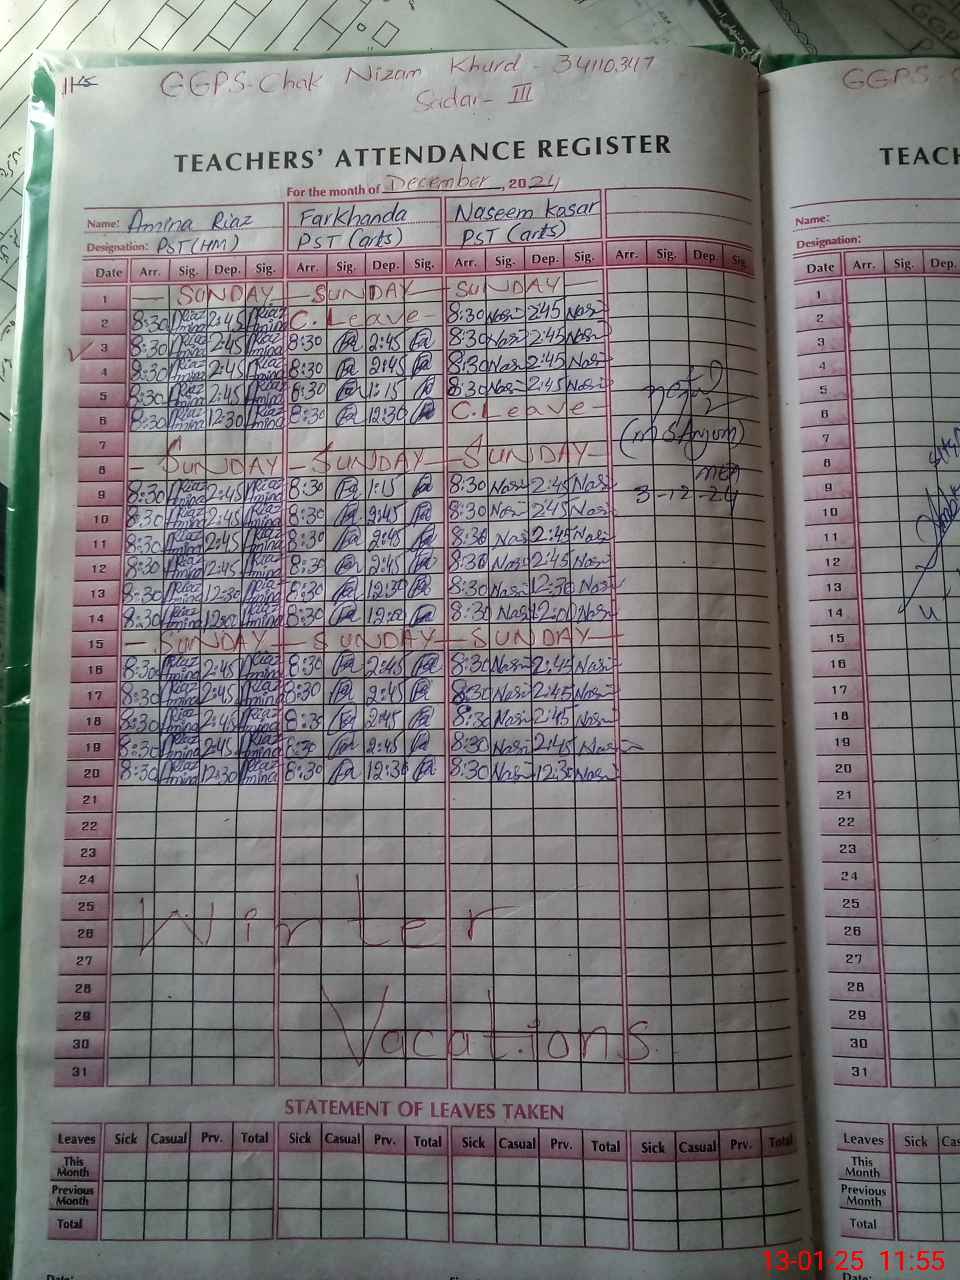 GGPS-Chak Nizam Khurd - 34110347
GGPS-
Sadar- III
TEACHERS' ATTENDANCE REGISTER
TEACH
For the month of December, 2024
Name: Amina Riaz Farkhanda Naseem Kosar
Name:
Designation: PST(HM) PST (arts) PST (arts)
Designation:
Date Arr. Sig. Dep. Sig. Arr. Sig. Dep. Sig. Arr. Sig. Dep. Sig. Arr. Sig. Dep. Sig.
Date Arr. Sig. Dep.
1 - SUNDAY - SUNDAY - SUNDAY -
2 8:30 Riaz Amina 2:45 Riaz Amina C. Leave - 8:30 Nasi 2:45 Nasi
3 8:30 Riaz Amina 2:45 Riaz Amina 8:30 Fa 2:45 Fa 8:30 Nasi 2:45 Nasi
4 8:30 Riaz Amina 2:45 Riaz Amina 8:30 Fa 2:45 Fa 8:30 Nasi 2:45 Nasi
5 8:30 Riaz Amina 2:45 Riaz Amina 8:30 Fa 1:15 Fa 8:30 Nasi 2:45 Nasi
6 8:30 Riaz Amina 12:30 Riaz Amina 8:30 Fa 12:30 Fa C. Leave -
7 (M S Anjum)
8 - SUNDAY - SUNDAY - SUNDAY -
9 8:30 Riaz Amina 2:45 Riaz Amina 8:30 Fa 1:15 Fa 8:30 Nasi 2:45 Nasi 3-12-24
10 8:30 Riaz Amina 2:45 Riaz Amina 8:30 Fa 2:45 Fa 8:30 Nasi 2:45 Nasi
11 8:30 Riaz Amina 2:45 Riaz Amina 8:30 Fa 2:45 Fa 8:30 Nasi 2:45 Nasi
12 8:30 Riaz Amina 2:45 Riaz Amina 8:30 Fa 2:45 Fa 8:30 Nasi 2:45 Nasi
13 8:30 Riaz Amina 12:30 Riaz Amina 8:30 Fa 12:30 Fa 8:30 Nasi 12:30 Nasi
14 8:30 Riaz Amina 12:00 Riaz Amina 8:30 Fa 12:00 Fa 8:30 Nasi 12:00 Nasi
15 - SUNDAY - SUNDAY - SUNDAY -
16 8:30 Riaz Amina 2:45 Riaz Amina 8:30 Fa 2:45 Fa 8:30 Nasi 2:45 Nasi
17 8:30 Riaz Amina 2:45 Riaz Amina 8:30 Fa 2:45 Fa 8:30 Nasi 2:45 Nasi
18 8:30 Riaz Amina 2:45 Riaz Amina 8:30 Fa 2:45 Fa 8:30 Nasi 2:45 Nasi
19 8:30 Riaz Amina 2:45 Riaz Amina 8:30 Fa 2:45 Fa 8:30 Nasi 2:45 Nasi
20 8:30 Riaz Amina 12:30 Riaz Amina 8:30 Fa 12:30 Fa 8:30 Nasi 12:30 Nasi
21
22
23
24
25
26 Winter
27
28
29
30 Vacations
31
1
2
3
4
5
6
7
8
9
10
11
12
13
14
15
16
17
18
19
20
21
22
23
24
25
26
27
28
29
30
31
STATEMENT OF LEAVES TAKEN
Leaves Sick Casual Prv. Total Sick Casual Prv. Total Sick Casual Prv. Total Sick Casual Prv. Total
This Month
Previous Month
Total
Leaves Sick Cas
This Month
Previous Month
Total
Date:
Date:
13-01-25 11:55